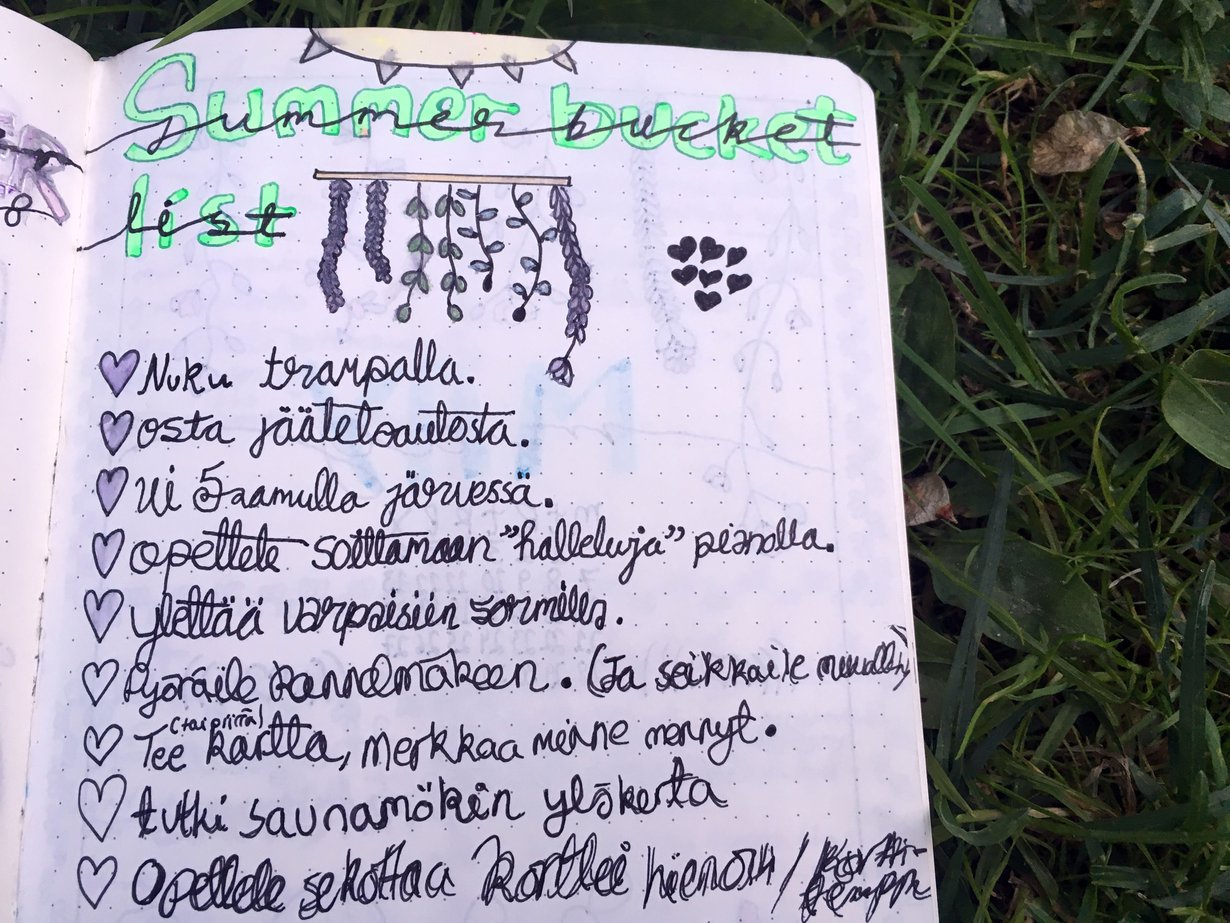 Summer bucket
list
Nuku trampalla.
osta jäätelöautosta.
Ui 5 aamulla järvessä.
opettele soittamaan "halleluja" pianolla.
ylettää varpaisiin sormilla.
Pyöräile kannelmäkeen. (Ja seikkaile muualla)
(tai printtaa)
Tee kartta, merkkaa minne mennyt.
tutki saunamökin yläkerta
Opettele sekottaa korttei hienosti /